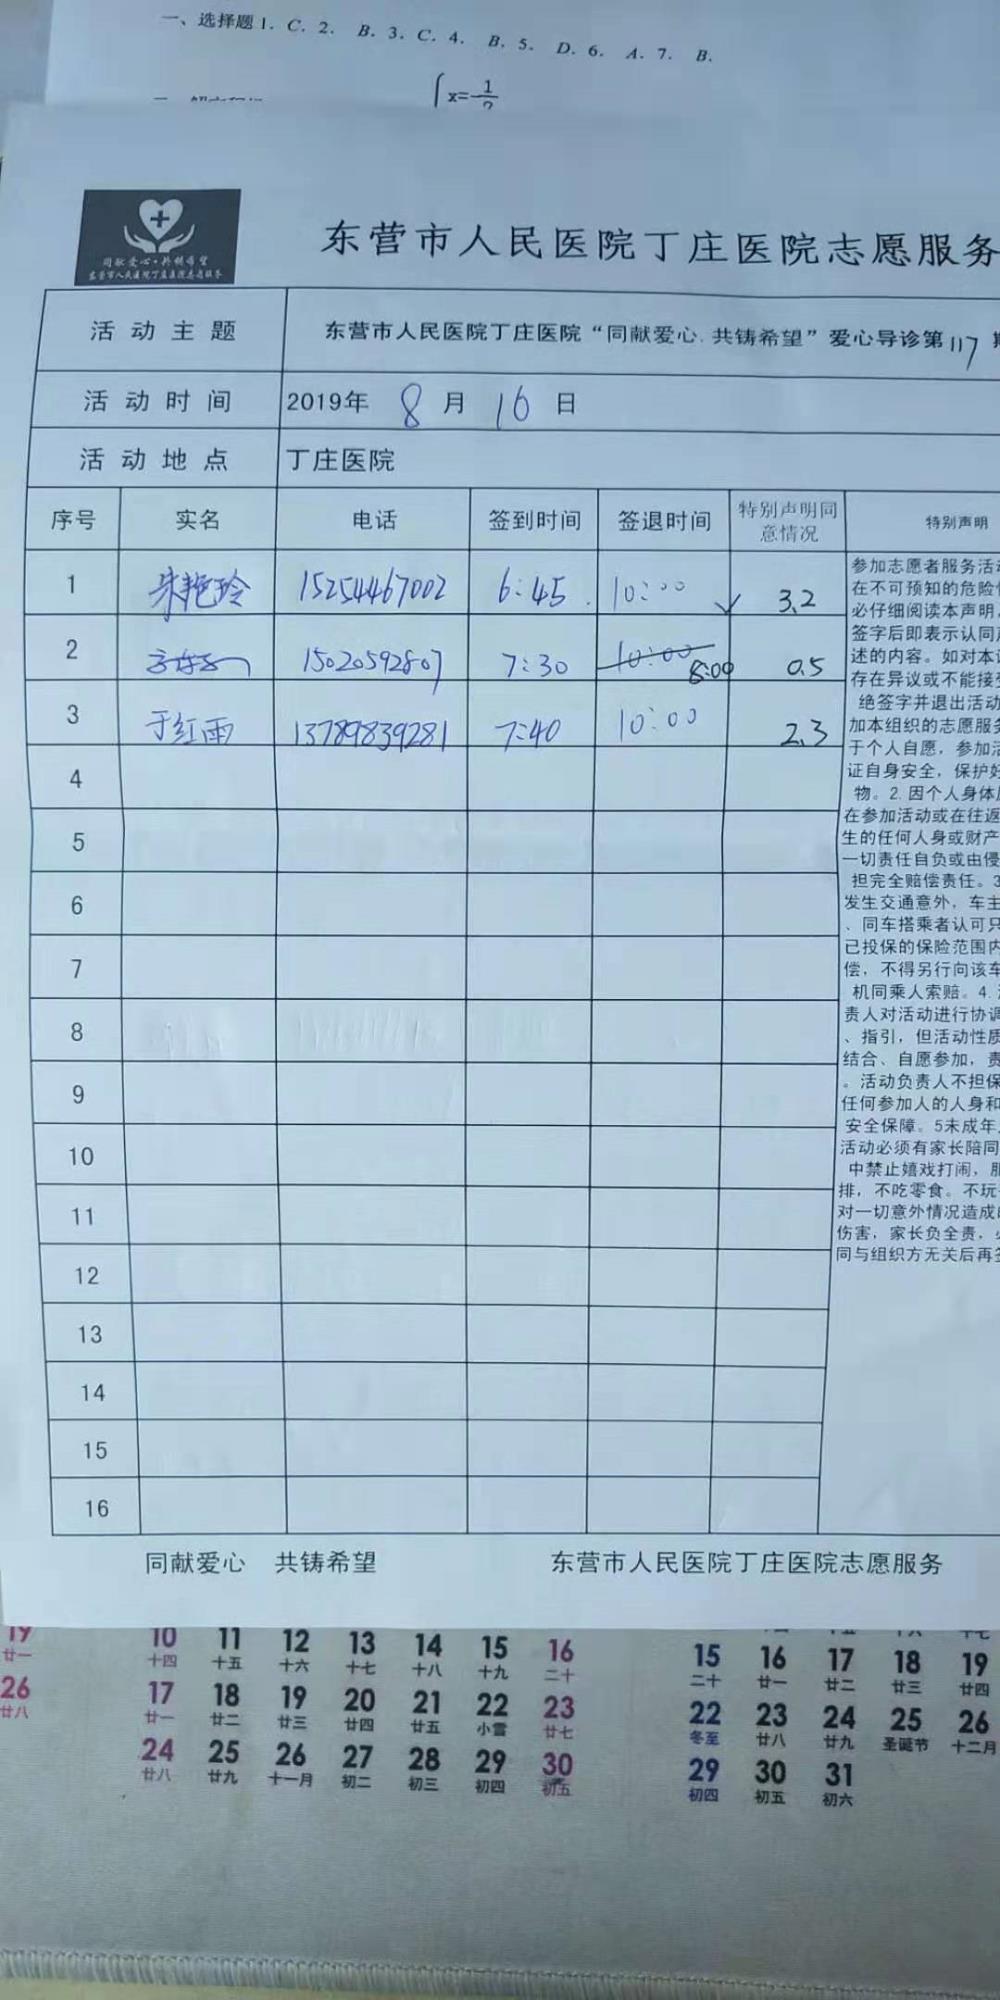 一、选择题 1. C. 2. B. 3. C. 4. B. 5. D. 6. A. 7. B.
x=-1
同献爱心·共铸希望
东营市人民医院丁庄医院志愿服务
东营市人民医院丁庄医院志愿服务
活动主题 东营市人民医院丁庄医院“同献爱心.共铸希望”爱心导诊第117
活动时间 2019年 8 月 16 日
活动地点 丁庄医院
序号 实名 电话 签到时间 签退时间 特别声明同意情况 特别声明
1 朱艳玲 15254467002 6:45 10:00 ✓ 3.2
2 15020592807 7:30 10:00 8:00 0.5
3 于红雨 13789839281 7:40 10:00 2.3
4
5
6
7
8
9
10
11
12
13
14
15
16
参加志愿者服务活
在不可预知的危险
必仔细阅读本声明,
签字后即表示认同
述的内容。如对本
存在异议或不能接
绝签字并退出活动
加本组织的志愿服
于个人自愿，参加
证自身安全，保护
物。2.因个人身体
在参加活动或在往返
生的任何人身或财产
一切责任自负或由侵
担完全赔偿责任。3
发生交通意外，车主
、同车搭乘者认可只
已投保的保险范围内
偿，不得另行向该车
机同乘人索赔。4.
责人对活动进行协调
、指引，但活动性质
结合、自愿参加，责
。活动负责人不担保
任何参加人的人身和
安全保障。5未成年
活动必须有家长陪同
中禁止嬉戏打闹，
排，不吃零食。不玩
对一切意外情况造成
伤害，家长负全责，
同与组织方无关后再
同献爱心 共铸希望 东营市人民医院丁庄医院志愿服务
19 10 11 12 13 14 15 16
廿一 十四 十五 十六 十七 十八 十九 二十
15 16 17 18 19
二十 廿一 廿二 廿三 廿四
26 17 18 19 20 21 22 23
廿八 廿一 廿二 廿三 廿四 廿五 小雪 廿七
22 23 24 25 26
冬至 廿八 廿九 圣诞节 十二月
24 25 26 27 28 29 30
廿八 廿九 十一月 初二 初三 初四 初五
29 30 31
初四 初五 初六